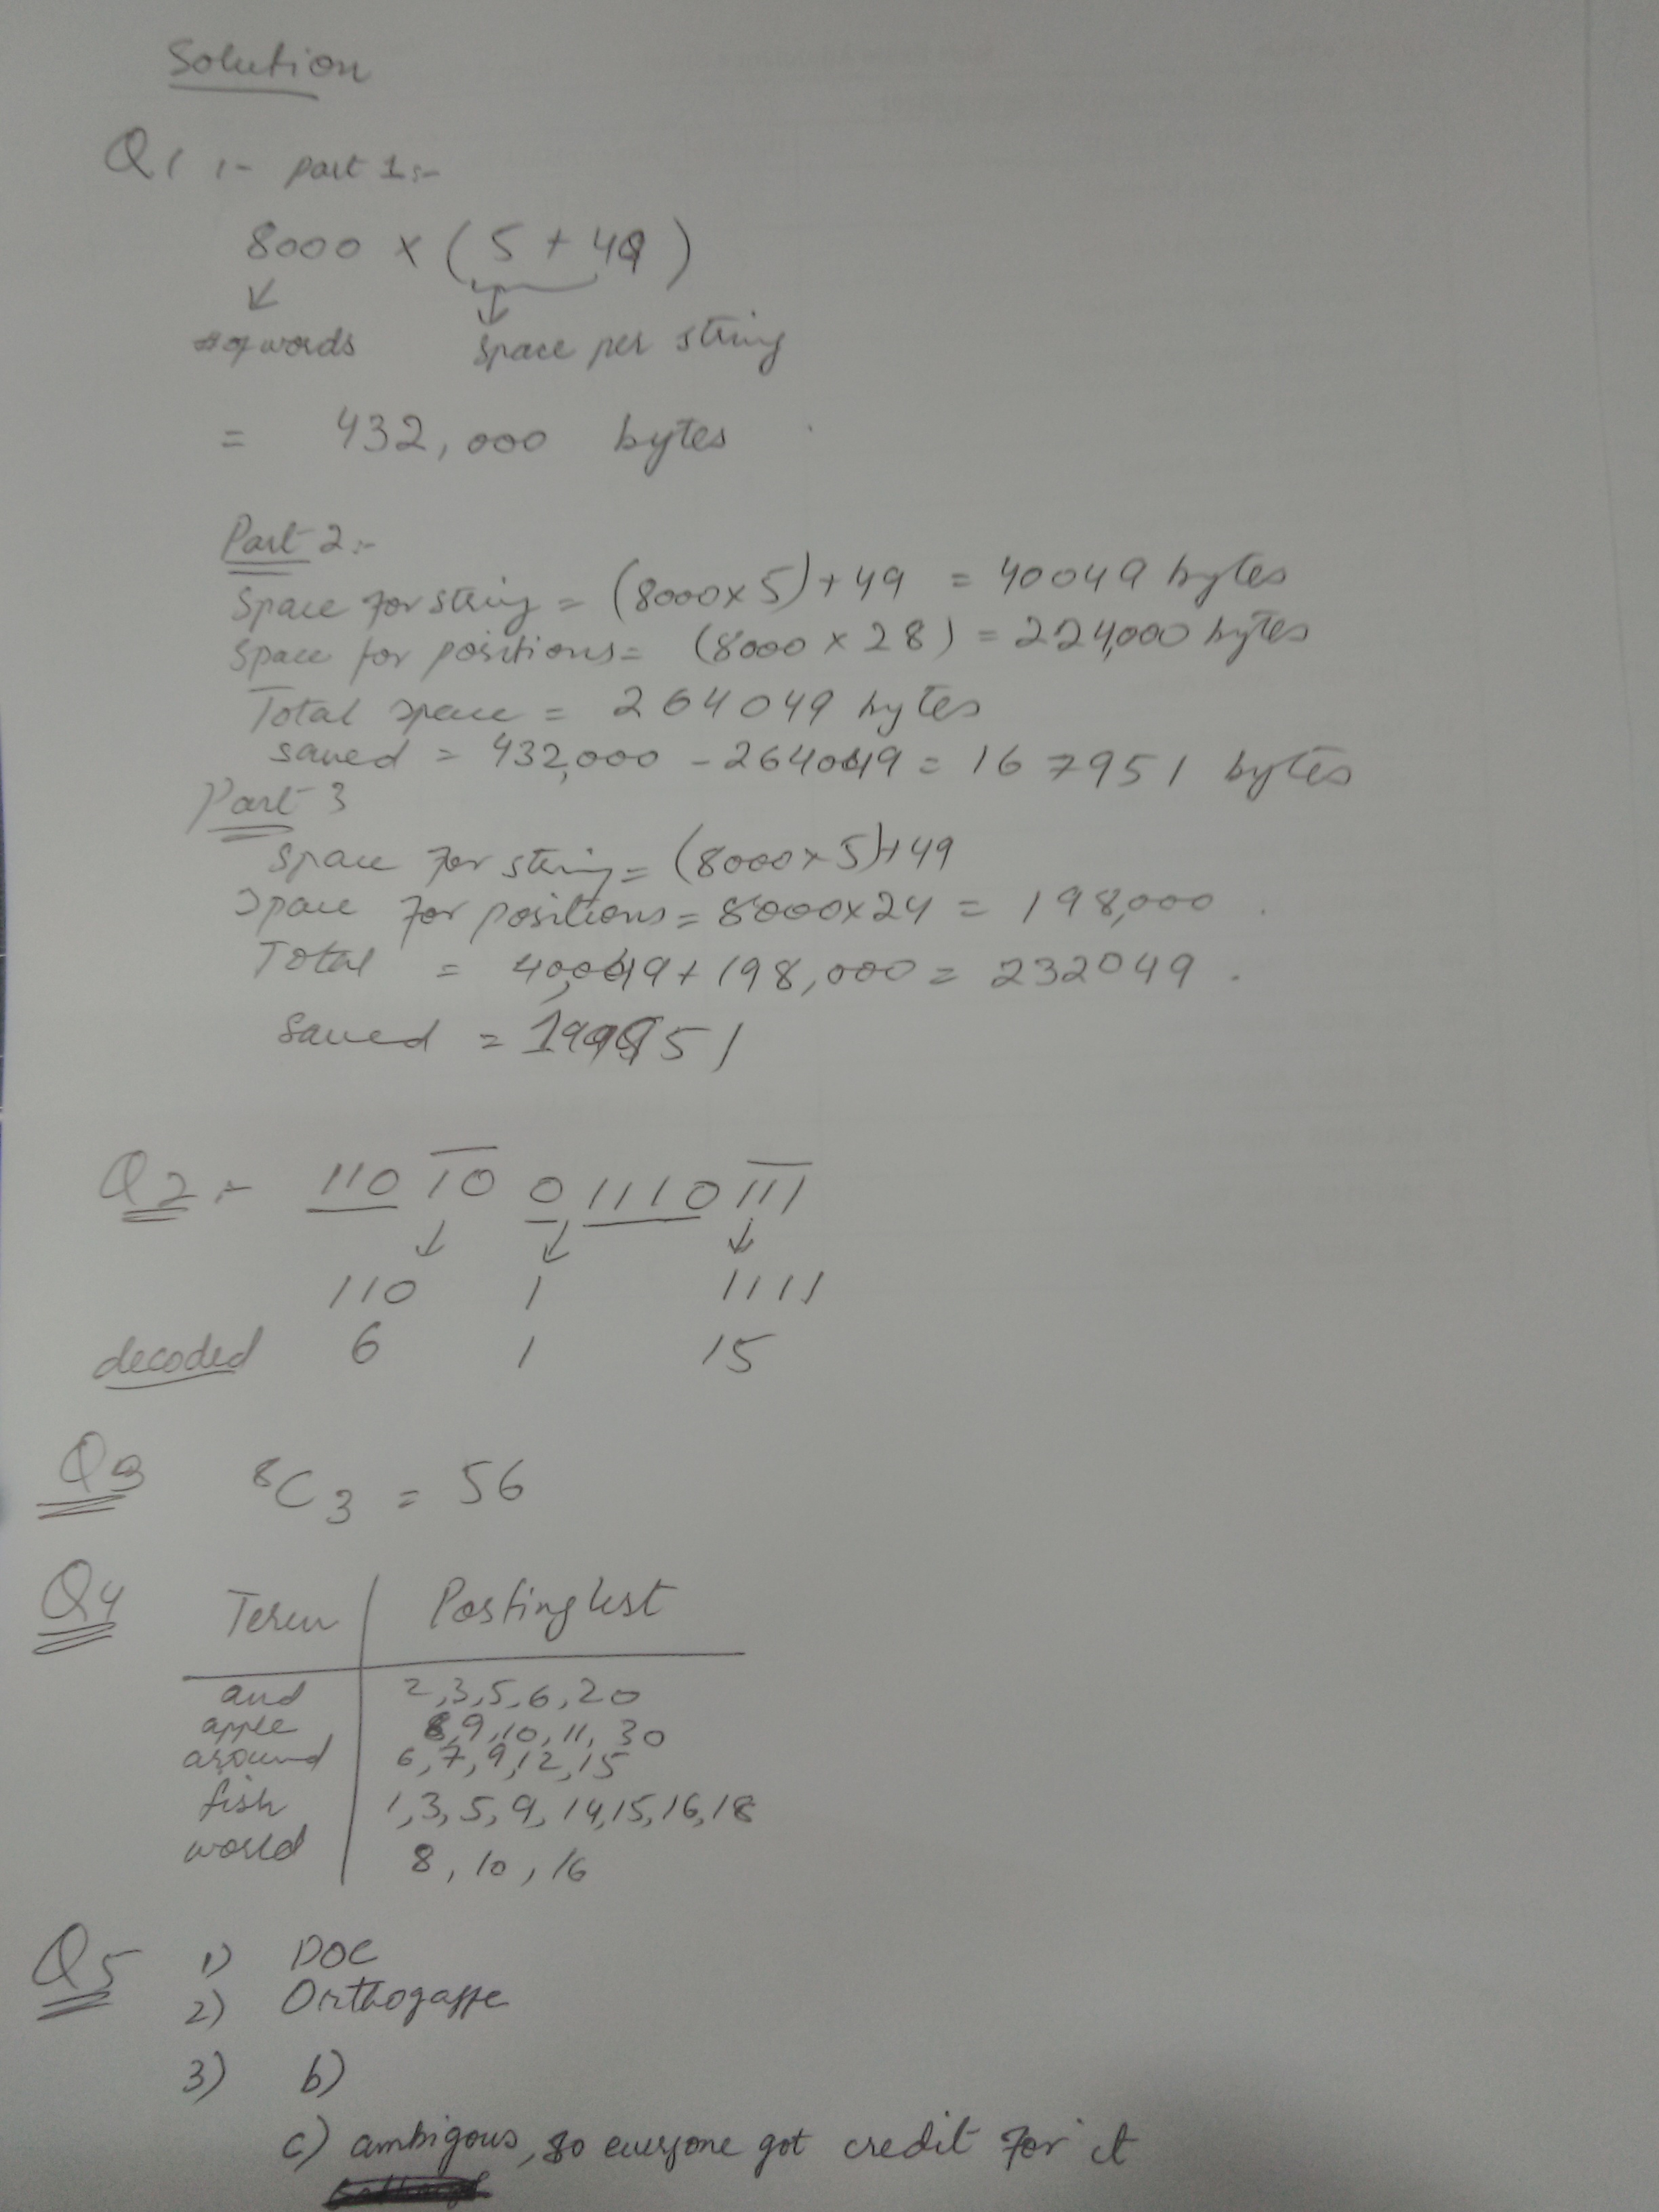 Solution
Q1 :- part 1:-
8000 × ( 5 + 49 )
# of words space per string
= 432,000 bytes
Part 2:-
Space for string = (8000×5)+49 = 40049 bytes
Space for positions= (8000 × 28) = 224,000 bytes
Total space = 264049 bytes
saved = 432,000 - 264049 = 167951 bytes
Part 3
Space for string = (8000×5)+49
Space for positions = 8000×24 = 198,000
Total = 40,049 + 198,000 = 232049.
Saved = 199951
Q2:- 110 10 0 1110 111
110 1 1111
decoded 6 1 15
Q3 ⁸C₃ = 56
Q4 Term Posting list
and 2,3,5,6,20
apple 8,9,10,11,30
around 6,7,9,12,15
fish 1,3,5,9,14,15,16,18
world 8,10,16
Q5 1) DOC
2) Orthogaffe
3) b)
c) ambigous, so everyone got credit for it